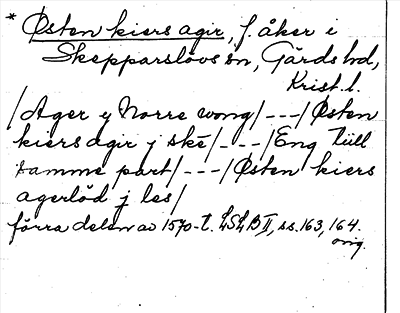 * Østen kiers agir, f. åker i
Skepparslövs sn, Gärds hd,
Krist. l.
/Ager y Norre wong/---/Østen
kiers agir j ske/---/Eng till
samme part/---/Østen kiers
agerlød j les/
förra delen av 1570-t. LSLB II, ss. 163, 164.
orig.